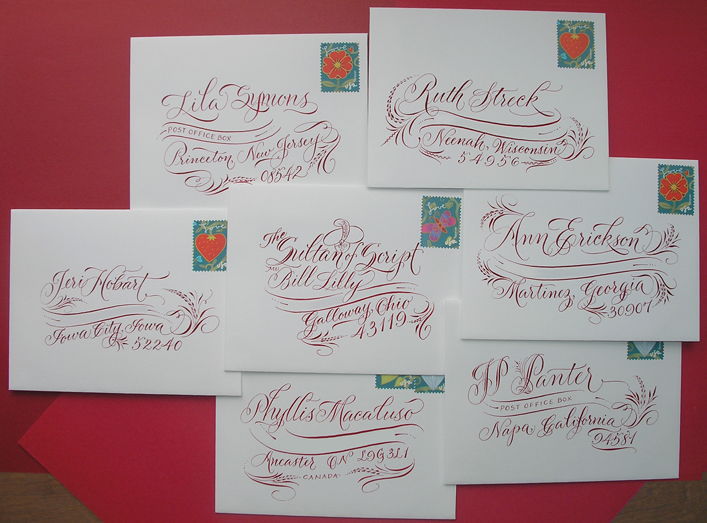 Lila Symons
POST OFFICE BOX
Princeton New Jersey
08542
Ruth Streck
Neenah, Wisconsin
54956
Jeri Hobart
Iowa City, Iowa
52240
The
Sultan of Script
Bill Lilly
Galloway, Ohio
43119
Ann Erickson
Martinez, Georgia
30907
Phyllis Macaluso
Ancaster ON L9G3L1
CANADA
JP Panter
POST OFFICE BOX
Napa California
94581